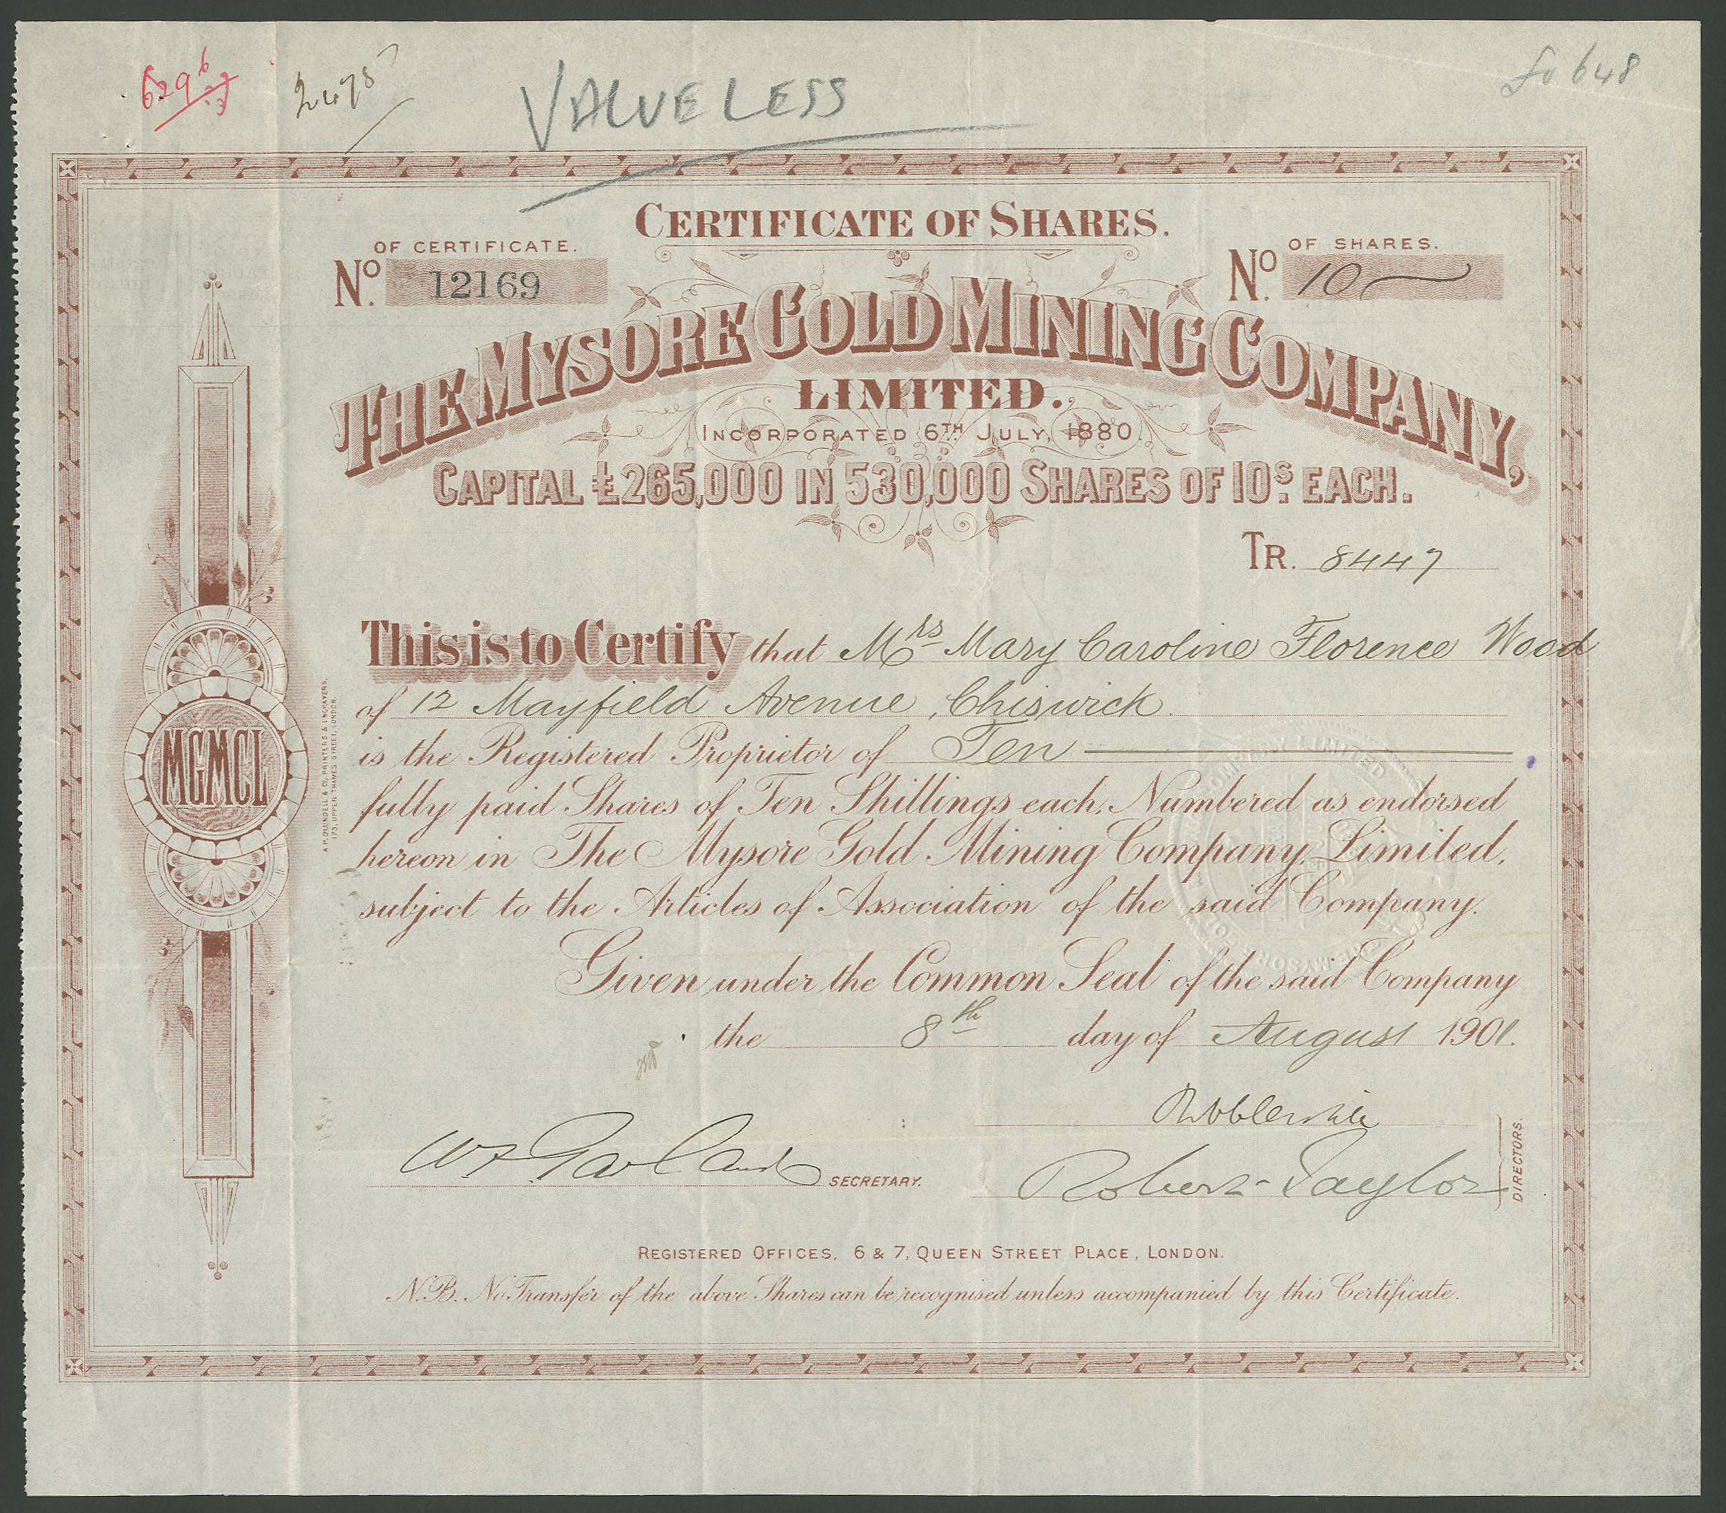 VALUELESS
fo 648
CERTIFICATE OF SHARES.
OF CERTIFICATE.
No. 12169
OF SHARES.
No. 10
THE MYSORE GOLD MINING COMPANY,
LIMITED.
INCORPORATED 6TH JULY, 1880.
CAPITAL £265,000 IN 530,000 SHARES OF 10s. EACH.
TR. 8447
This is to Certify that Mrs Mary Caroline Florence Wood
of 12 Mayfield Avenue, Chiswick
is the Registered Proprietor of Ten
fully paid Shares of Ten Shillings each, Numbered as endorsed
hereon in The Mysore Gold Mining Company, Limited,
subject to the Articles of Association of the said Company.
Given under the Common Seal of the said Company
the 8th day of August 1901.
MGMCL
173, UPPER THAMES STREET, LONDON.
SECRETARY.
Robert Taylor
DIRECTORS.
REGISTERED OFFICES, 6 & 7, QUEEN STREET PLACE, LONDON.
N.B. No Transfer of the above Shares can be recognised unless accompanied by this Certificate.